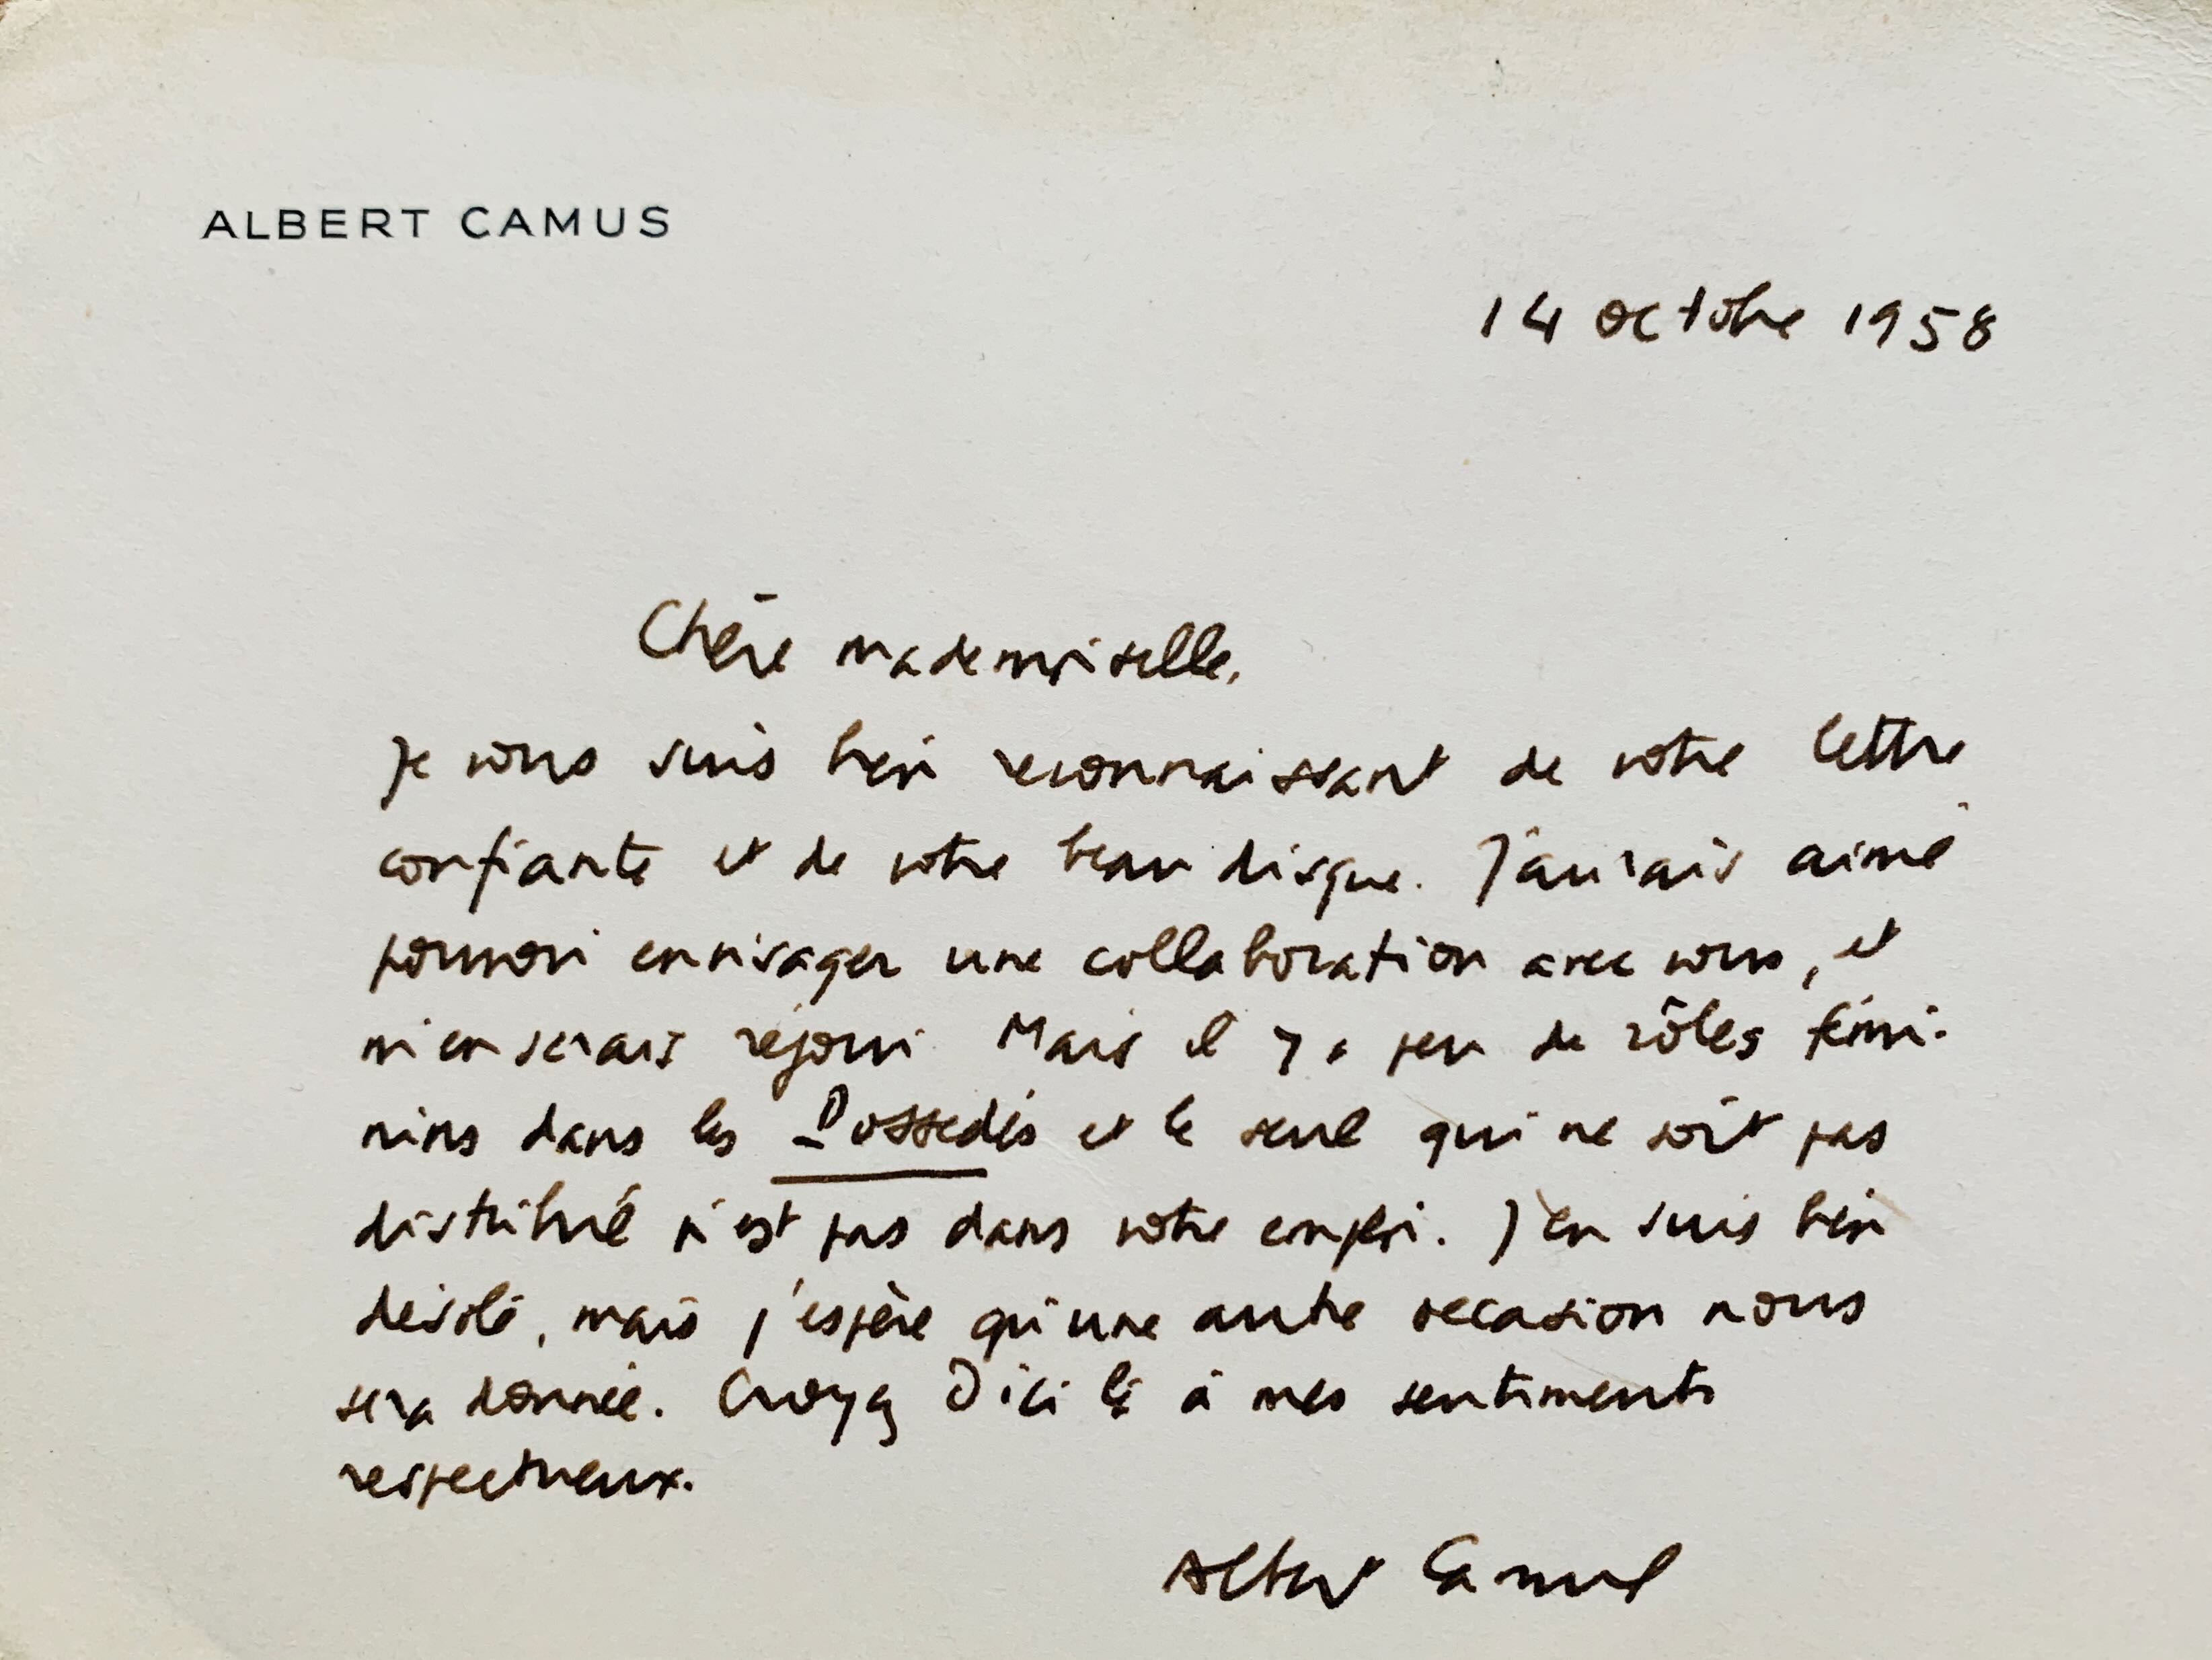 ALBERT CAMUS
14 octobre 1958
Chère mademoiselle,
Je vous suis bien reconnaissant de votre lettre
confiante et de votre beau disque. J'aurais aimé
pouvoir envisager une collaboration avec vous, et
m'en serais réjoui. Mais il y a peu de rôles fémi-
nins dans les Possédés et le seul qui ne soit pas
distribué n'est pas dans votre emploi. J'en suis bien
désolé, mais j'espère qu'une autre occasion nous
sera donnée. Croyez d'ici là à mes sentiments
respectueux.
Albert Camus